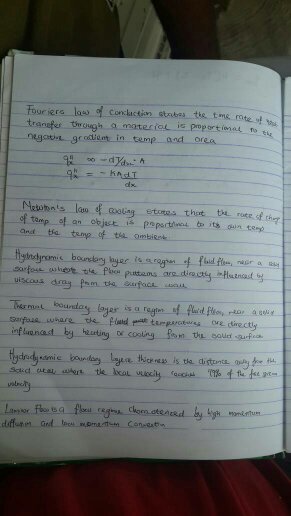 Fouriers law of conduction states the time rate of heat
transfer through a material is proportional to the
negative gradient in temp and area
q″x ∞ -dT/dx · A
q″x = - KA dT
dx
Newton's law of cooling states that the rate of change
of temp of an object is proportional to its own temp
and the temp of the ambient
Hydrodynamic boundary layer is a region of fluid flow, near a solid
surface where the flow patterns are directly influenced by
viscous drag from the surface wall
Thermal boundary layer is a region of fluid flow, near a solid
surface where the fluid temperatures are directly
influenced by heating or cooling from the solid surface
Hydrodynamic boundary layer thickness is the distance away from the
solid where the local velocity reaches 99% of the free stream
velocity
Laminar flow is a flow regime characterized by high momentum
diffusion and low momentum convection